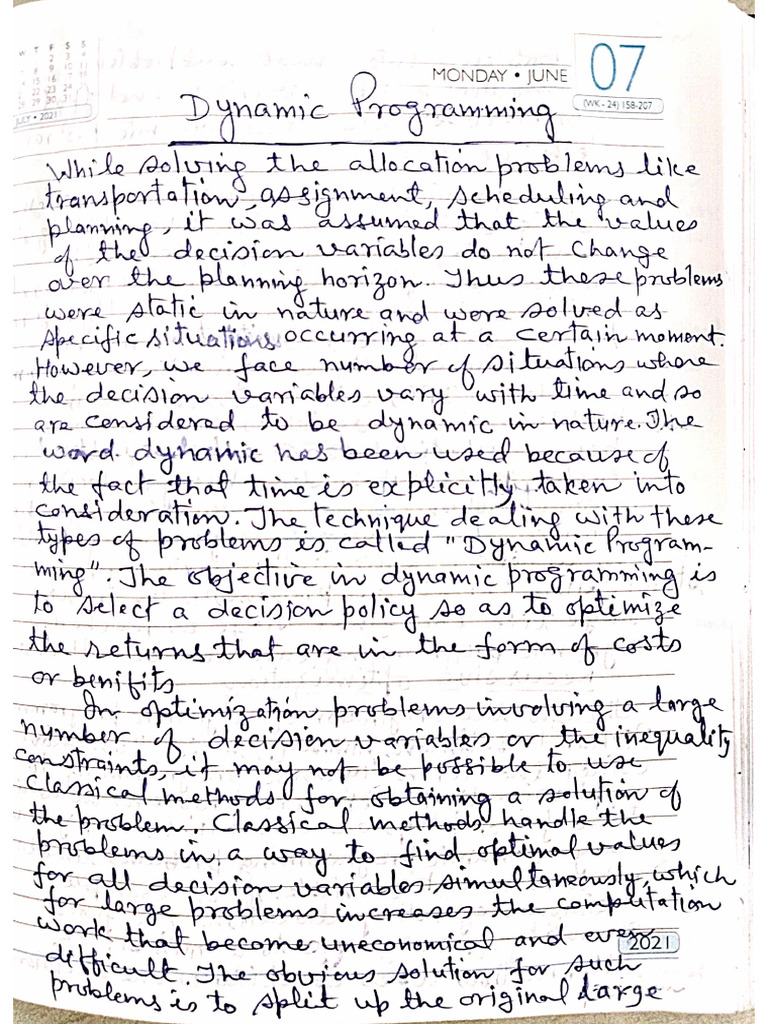 W T F S S
2 3
8 9 10
15 16 17
22 23 24
28 29 30 31
JULY • 2021
MONDAY • JUNE 07
(WK - 24) 158-207
Dynamic Programming
While solving the allocation problems like
transportation, assignment, scheduling and
planning, it was assumed that the values
of the decision variables do not change
over the planning horizon. Thus these problems
were static in nature and were solved as
specific situations occurring at a certain moment.
However, we face number of situations where
the decision variables vary with time and so
are considered to be dynamic in nature. The
word dynamic has been used because of
the fact that time is explicitly taken into
consideration. The technique dealing with these
types of problems is called "Dynamic Program-
ming". The objective in dynamic programming is
to select a decision policy so as to optimize
the returns that are in the form of costs
or benifits
In optimization problems involving a large
number of decision variables or the inequality
constraints, it may not be possible to use
Classical methods for obtaining a solution of
the problem. Classical methods handle the
problems in a way to find optimal values
for all decision variables simultaneously, which
for large problems increases the computation
work that become uneconomical and even
2021
difficult. The obvious solution for such
problems is to split up the original large